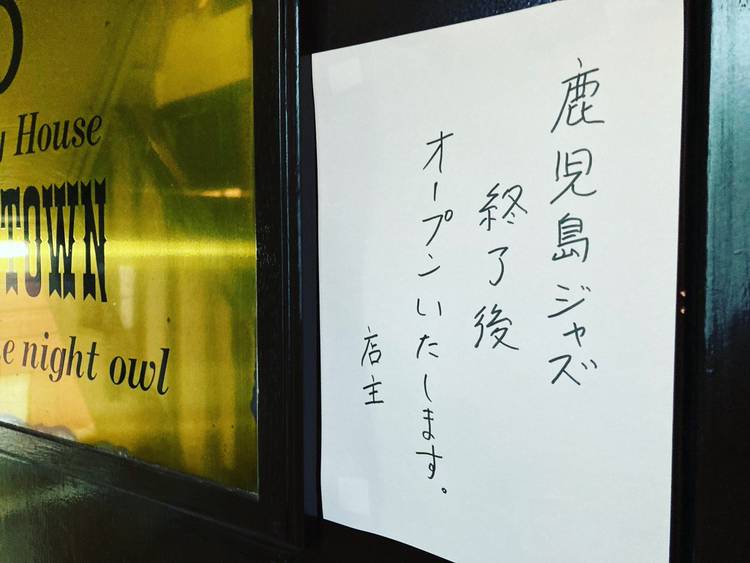 House
TOWN
night owl
鹿児島ジャズ
終了後
オープンいたします。
店主